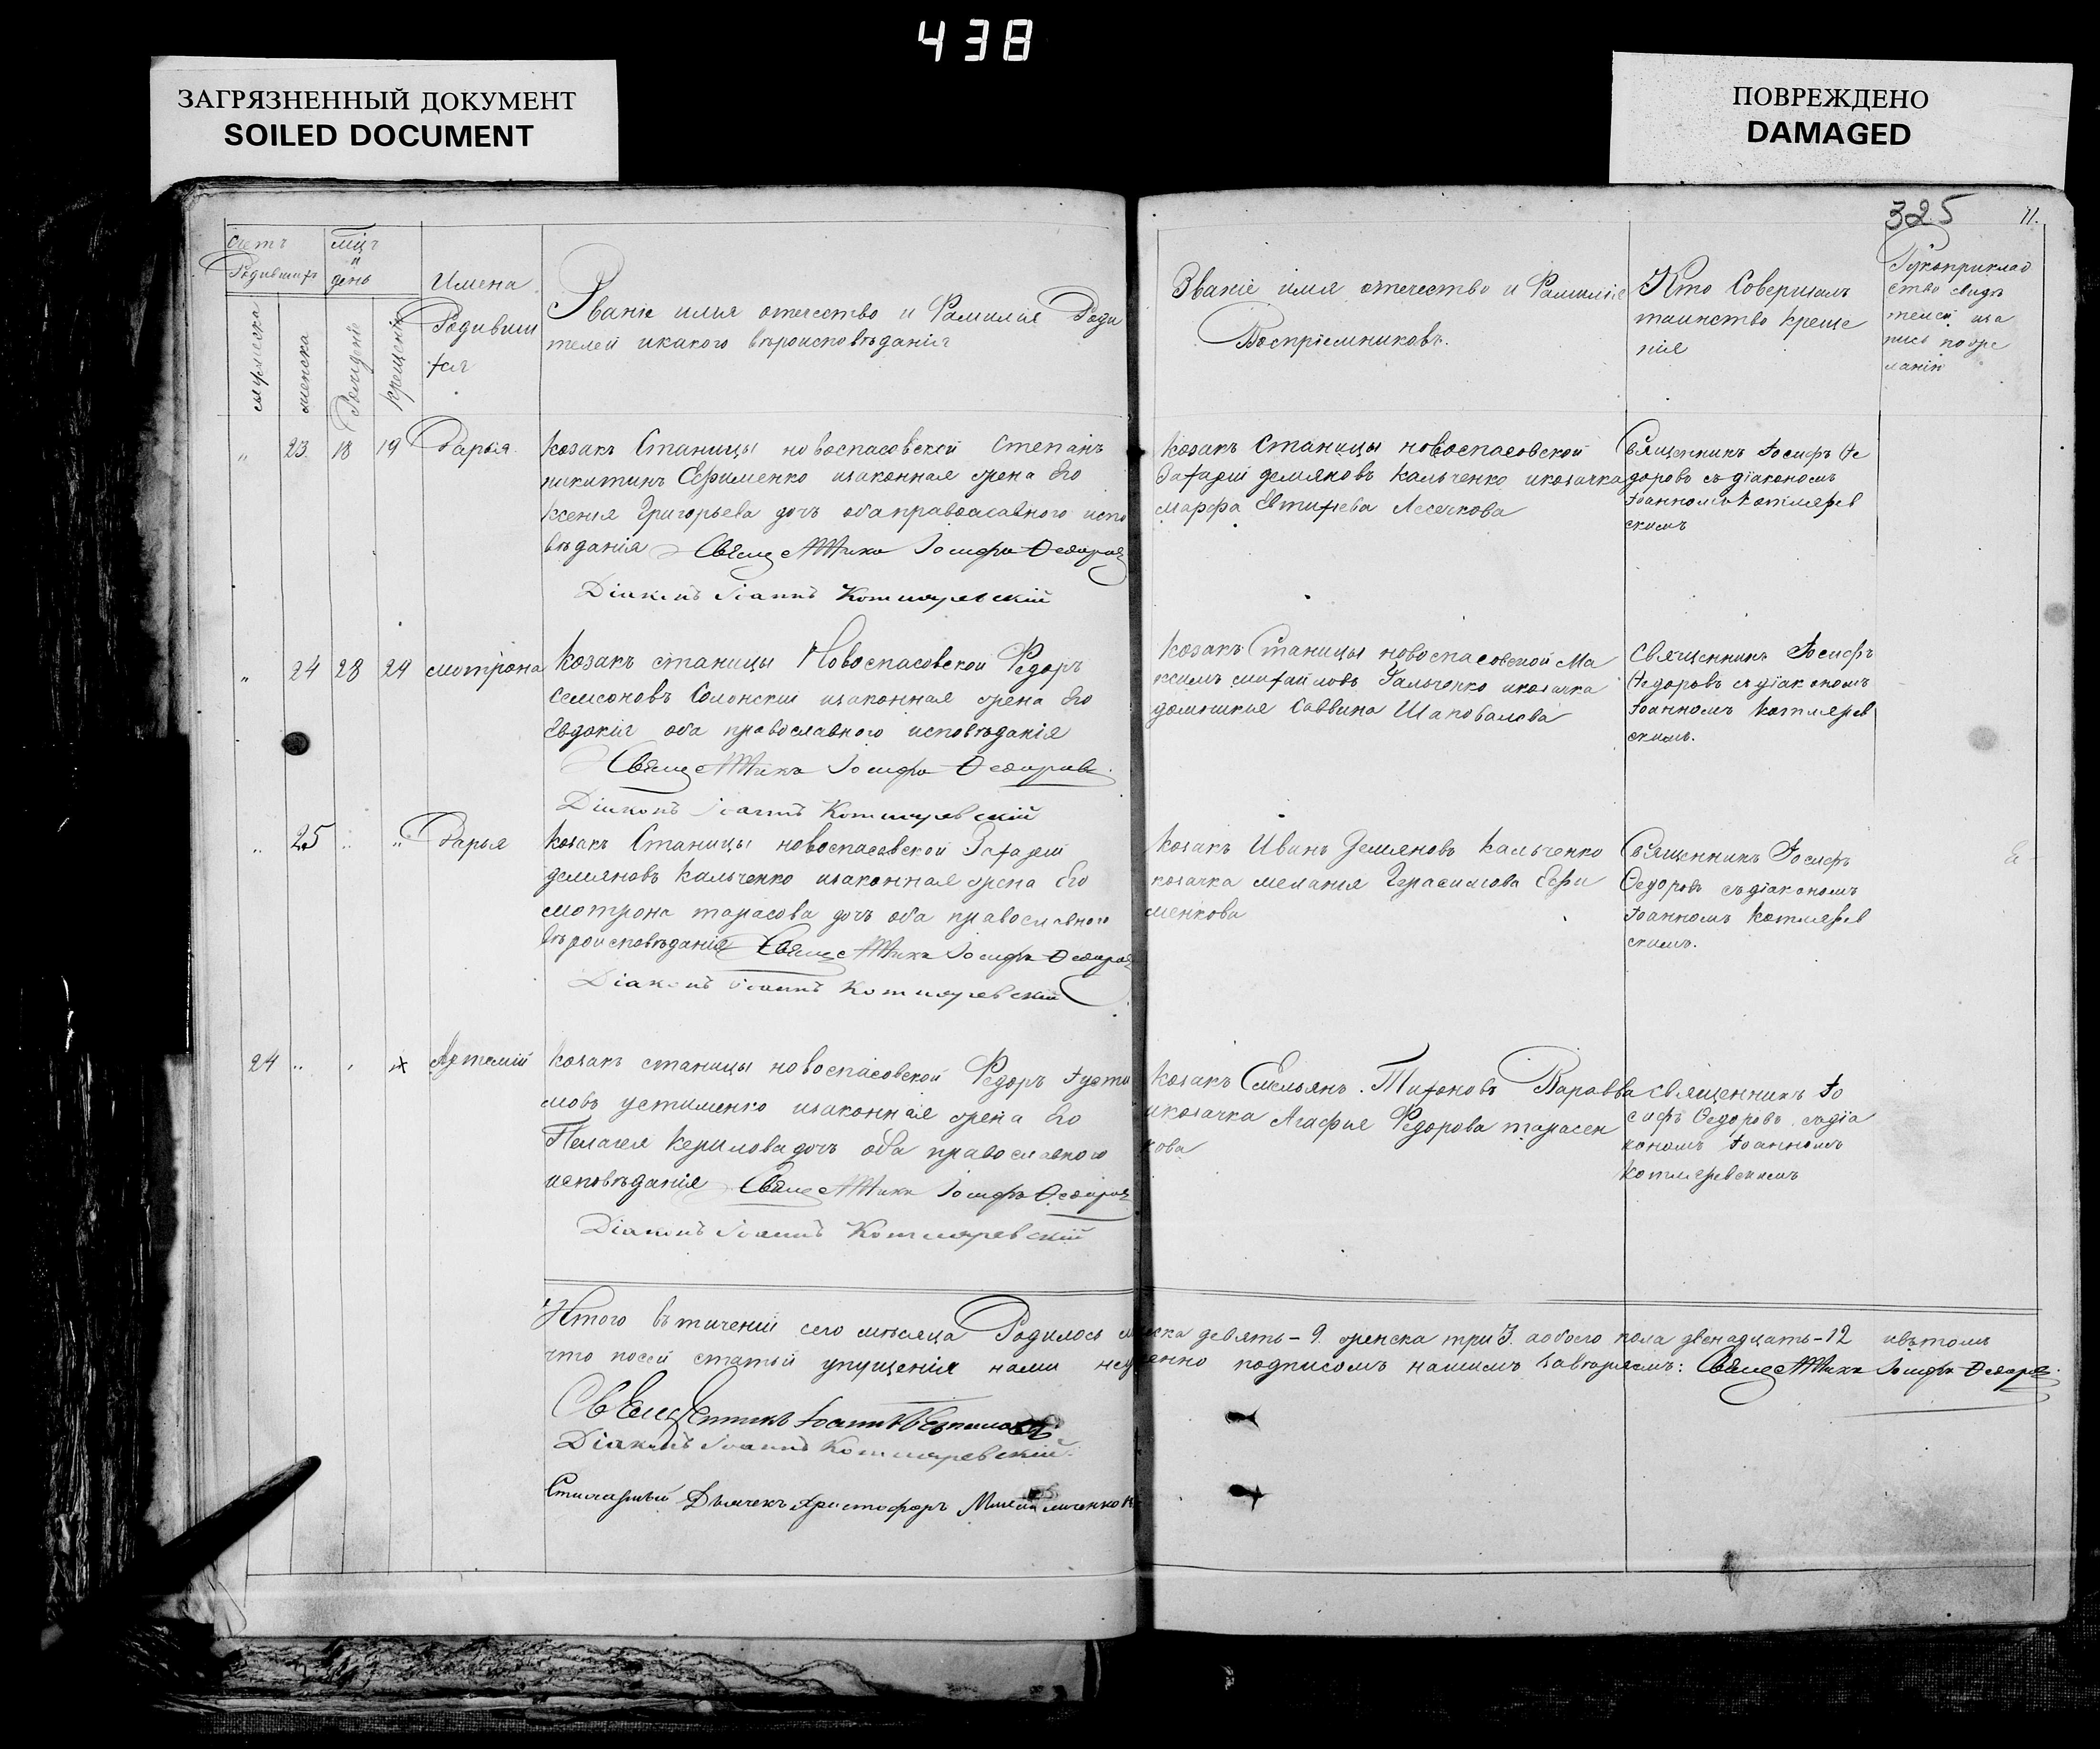 438
ЗАГРЯЗНЕННЫЙ ДОКУМЕНТ
SOILED DOCUMENT
ПОВРЕЖДЕНО
DAMAGED
325
11.
Счетъ
Родившихъ
мужеска
женска
мцъ
и
день
Рожденъ
крещенія
Имена
Родивши
хся
Званіе имя отечество и Фамилія Роди
телей икакого вѣроисповѣданія
Званіе имя отечество и Фамилія
Воспріемниковъ.
Кто Совершалъ
таинство креще
нія
Рукоприклад
ство свидѣ
телей иза
пись по же
ланію
„ 23 18 19 Дарья
козакъ Станицы новоспасовской Степанъ
никитинъ Ефименко изаконная жена Его
Ксенія Григорьева дочь оба православнаго испо
вѣданія Священникъ Іосифъ Ѳедоровъ
Діаконъ Іоаннъ Котляревскій
козакъ Станицы новоспасовской
Захарій демяновъ Кальченко икозачка
марфа Евтихіева Лесечкова
Священникъ Іосифъ Ѳе
доровъ съ діакономъ
Іоанномъ Котлярев
скимъ
„ 24 28 29 мотрона
Козакъ станицы Новоспасовской Федоръ
Семсоновъ Солонскій изаконная жена Его
Евдокія оба православнаго исповѣданія
Священникъ Іосифъ Ѳедоровъ.
Діаконъ Іоаннъ Котляревскій
козакъ Станицы новоспасовской Ма
ксимъ михайловъ Гальченко икозачка
домникія Саввина Шаповалова
Священникъ Іосифъ
Ѳедоровъ съ діакономъ
Іоанномъ Котлярев
скимъ.
„ 25 „ „ Дарья
козакъ Станицы новоспасовской Захарій
демяновъ Кальченко изаконная жена Его
мотрона тарасова дочь оба православнаго
вѣроисповѣданія Священникъ Іосифъ Ѳедоровъ
Діаконъ Іоаннъ Котляревскій
козакъ Иванъ Демяновъ Кальченко
козачка меланія Герасимова Ефи
менкова
Священникъ Іосифъ
Ѳедоровъ съ діакономъ
Іоанномъ Котлярев
скимъ.
24 „ „ Артемій
козакъ станицы новоспасовской Федоръ
мовъ устименко изаконная жена Его
Пелагея Керилова дочь оба православнаго
исповѣданія Священникъ Іосифъ Ѳедоровъ
Діаконъ Іоаннъ Котляревскій
козакъ Емельянъ. Тихоновъ Варавва
икозачка Агафія Федорова тарасен
кова
священникъ Іо
сифъ Ѳедоровъ съ діа
кономъ Іоанномъ
Котляревскимъ
Итого втеченіи сего мѣсяца Родилось мужеска девять - 9. женска три 3. аобоего пола двенадцать - 12 ивтомъ
что посей статьи упущенія нами подписомъ нашимъ завѣряемъ: Священникъ Іосифъ Ѳедоровъ.
Священникъ Іоаннъ
Діаконъ Іоаннъ Котляревскій.
Стихарный Дьячекъ Христофоръ